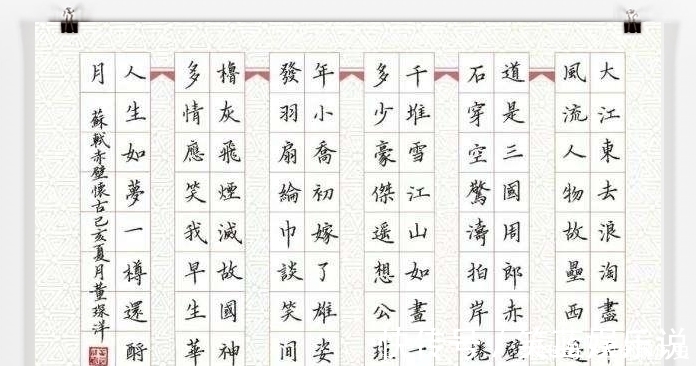 大江東去浪淘盡
風流人物故壘西
道是三國周郎赤壁
石穿空驚濤拍岸捲
千堆雪江山如畫一
多少豪傑遥想公瑾
年小喬初嫁了雄姿
發羽扇綸巾談笑間
櫓灰飛煙滅故國神
多情應笑我早生華
人生如夢一樽還酹
月
蘇軾赤壁懷古己亥夏月董琛洋